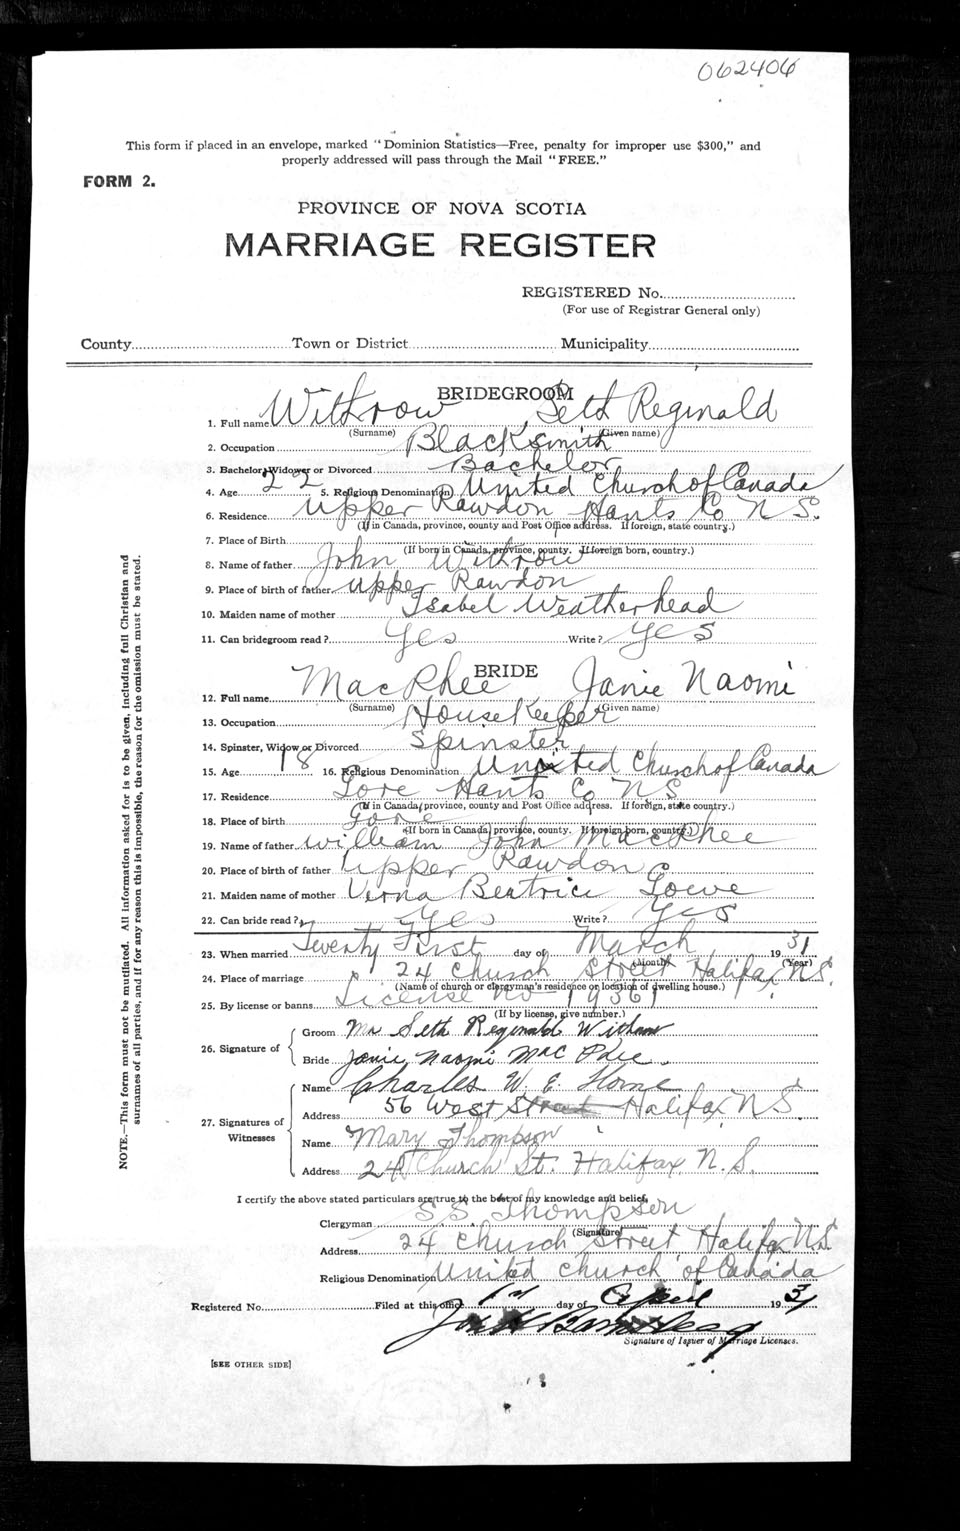 062406
This form if placed in an envelope, marked "Dominion Statistics—Free, penalty for improper use $300," and
properly addressed will pass through the Mail "FREE."
FORM 2.
PROVINCE OF NOVA SCOTIA
MARRIAGE REGISTER
REGISTERED No.
(For use of Registrar General only)
County Town or District Municipality
BRIDEGROOM
1. Full name Withrow Seth Reginald
(Surname) (Given name)
2. Occupation Blacksmith
3. Bachelor, Widower or Divorced Bachelor
4. Age 22 5. Religious Denomination United Church of Canada
6. Residence Upper Rawdon Hants Co N S.
(If in Canada, province, county and Post Office address. If foreign, state country.)
7. Place of Birth
(If born in Canada, province, county. If foreign born, country.)
8. Name of father John Withrow
9. Place of birth of father Upper Rawdon
10. Maiden name of mother Isabel Weatherhead
11. Can bridegroom read? Yes Write? Yes
BRIDE
12. Full name MacPhee Janie Naomi
(Surname) (Given name)
13. Occupation HouseKeeper
14. Spinster, Widow or Divorced Spinster
15. Age 18 16. Religious Denomination United Church of Canada
17. Residence Gore Hants Co N S
(If in Canada, province, county and Post Office address. If foreign, state country.)
18. Place of birth Gore
(If born in Canada, province, county. If foreign born, country.)
19. Name of father William John MacPhee
20. Place of birth of father Upper Rawdon
21. Maiden name of mother Verna Beatrice Loewe
22. Can bride read? Yes Write? Yes
23. When married Twenty First day of March 1931
(Month) (Year)
24. Place of marriage 24 Church Street Halifax N.S.
(Name of church or clergyman's residence or location of dwelling house.)
25. By license or banns License No 19361
(If by license, give number.)
26. Signature of
Groom Mr Seth Reginald Withrow
Bride Janie Naomi Mac Phee.
27. Signatures of Witnesses
Name Charles W. E. Horne
Address 56 West Street Halifax N S.
Name Mary Thompson
Address 24 Church St. Halifax N. S.
I certify the above stated particulars are true to the best of my knowledge and belief.
Clergyman S S Thompson
(Signature)
Address 24 Church Street Halifax N.S.
Religious Denomination United Church of Canada
Registered No. Filed at this office 1st day of April 1931
Signature of Issuer of Marriage Licenses.
[SEE OTHER SIDE]
NOTE.—This form must not be mutilated. All information asked for is to be given, including full Christian and
surnames of all parties, and if for any reason this is impossible, the reason for the omission must be stated.